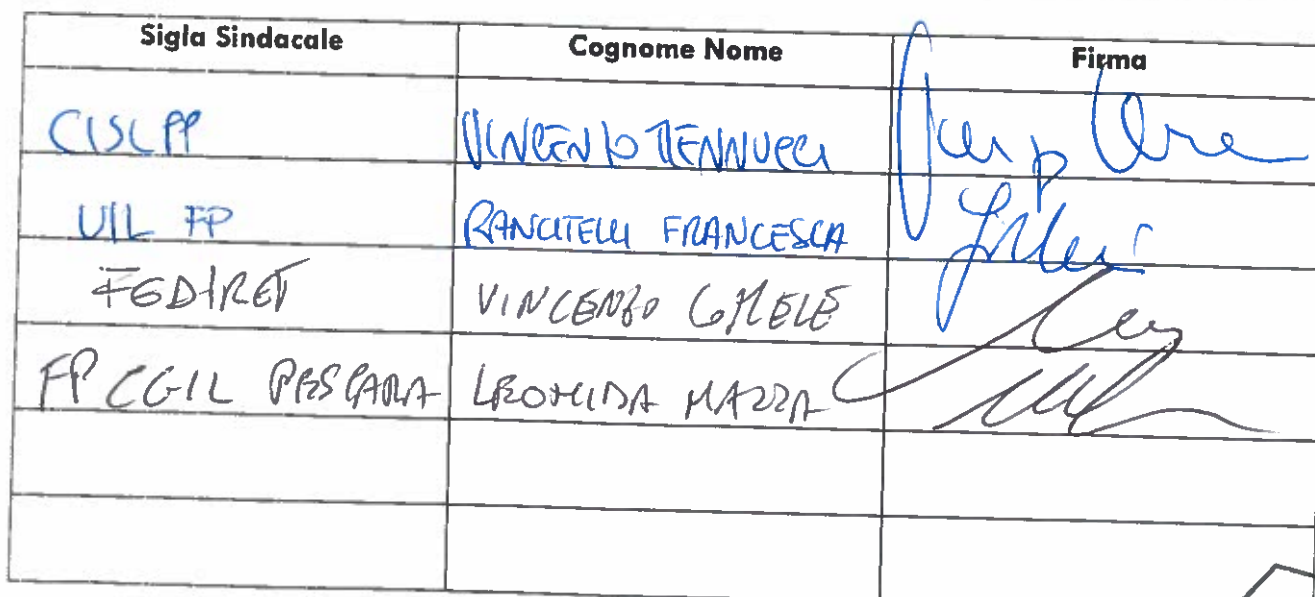 Sigla Sindacale Cognome Nome Firma
CISL FP VINCENZO
UIL FP RANCITELLI FRANCESCA
FEDIRET VINCENZO
FP CGIL PESCARA LEONIDA MAZZA